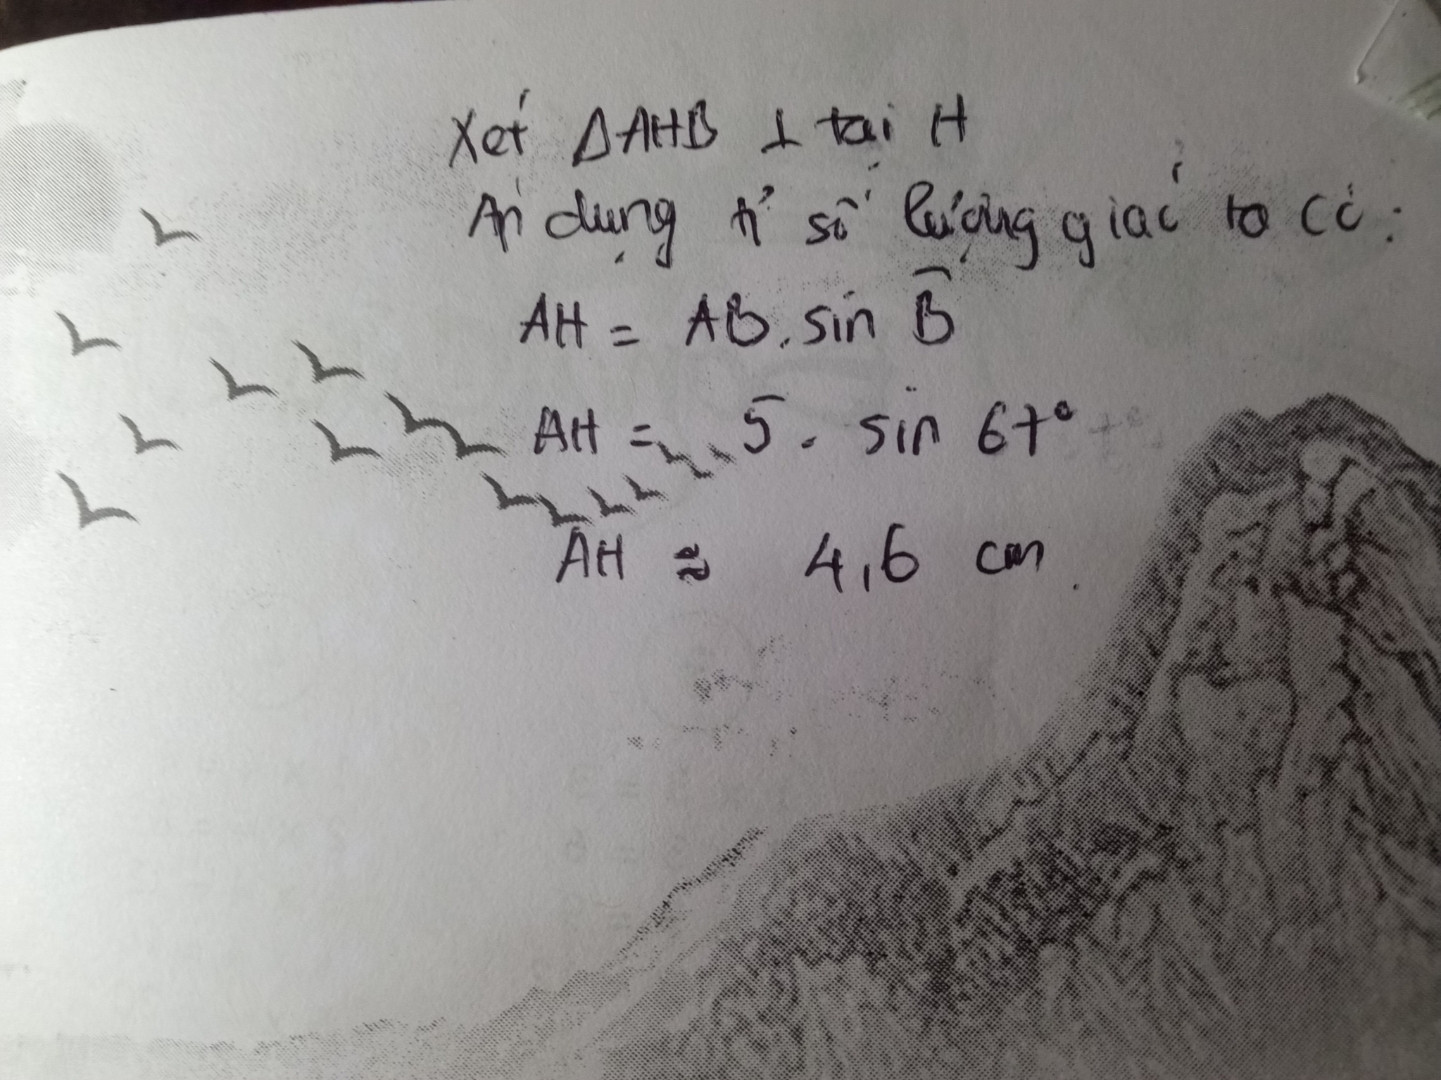 Xét ΔAHB ⊥ tại H
Áp dụng tỉ số lượng giác ta có:
AH = AB. sin B̂
AH = 5. sin 67°
AH ≈ 4,6 cm.